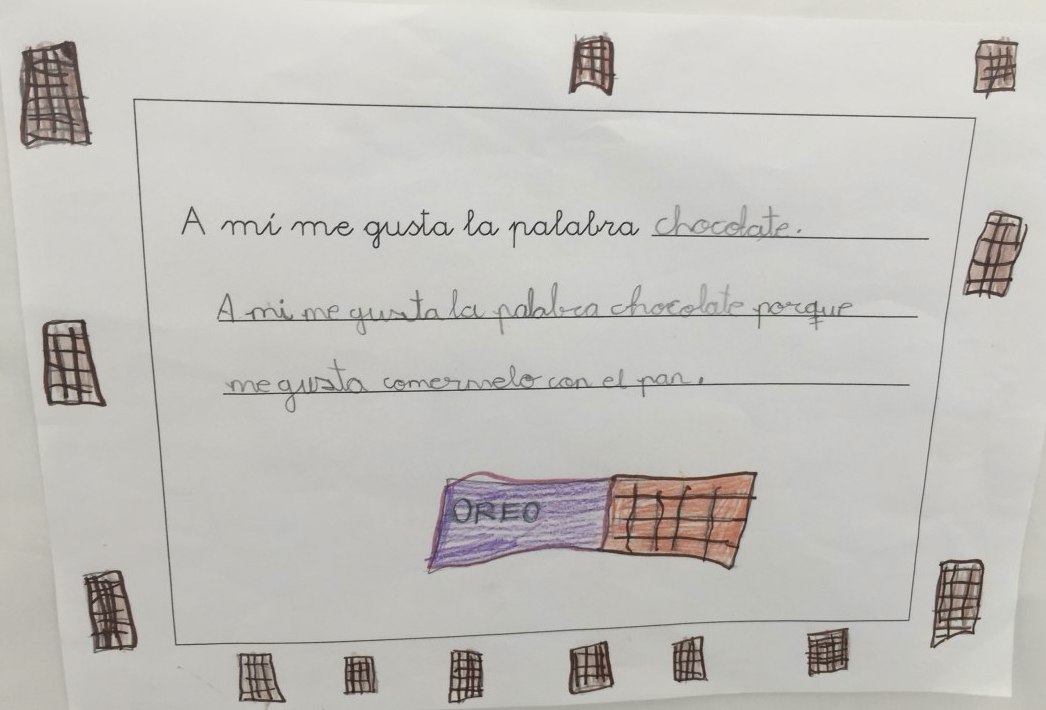 A mí me gusta la palabra chocolate.
A mi me gusta la palabra chocolate porque
me gusta comermelo con el pan.
OREO